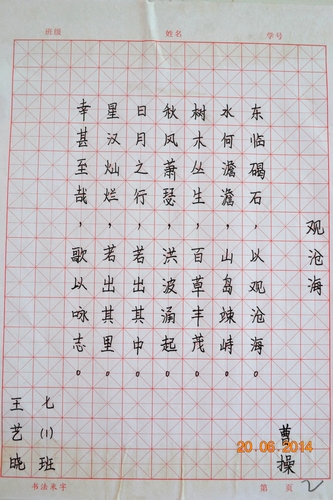 班级 姓名 学号
观沧海
东临碣石，以观沧海。
水何澹澹，山岛竦峙。
树木丛生，百草丰茂。
秋风萧瑟，洪波涌起。
日月之行，若出其中
星汉灿烂，若出其里
幸甚至哉，歌以咏志。
曹操
七(1)班
王艺晓
20.06.2014
书法米字 第 页 2